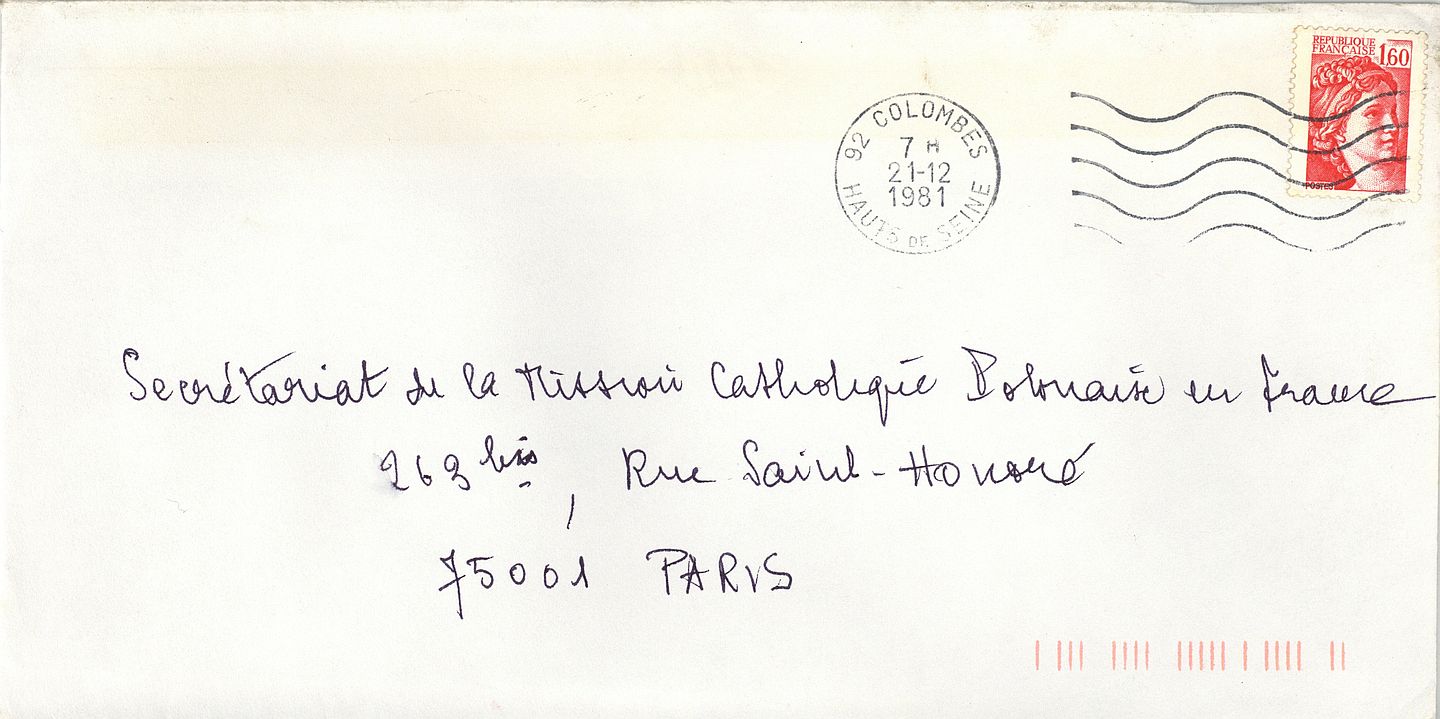 REPUBLIQUE
FRANÇAISE 1,60
POSTES
92 COLOMBES
7 H
21-12
1981
HAUTS DE SEINE
Secrétariat de la Mission Catholique Polonaise en France
263 bis, Rue Saint-Honoré
75001 PARIS